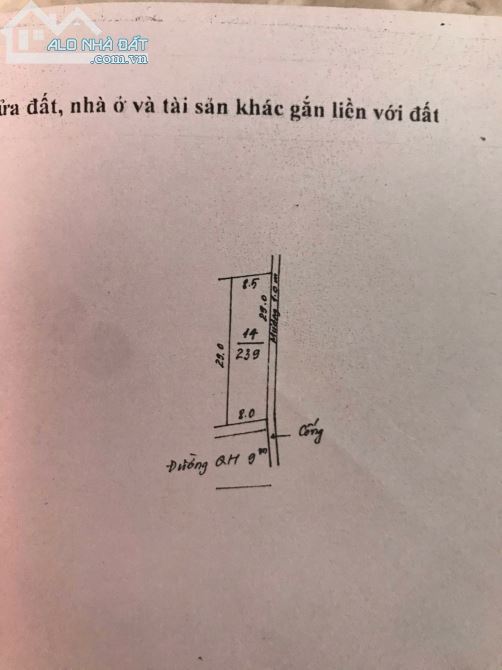 ALO NHÀ ĐẤT
ửa đất, nhà ở và tài sản khác gắn liền với đất
8.5
29.0
Mương 1.0 m
14
239
29.0
8.0
Cống
Đường QH 9m